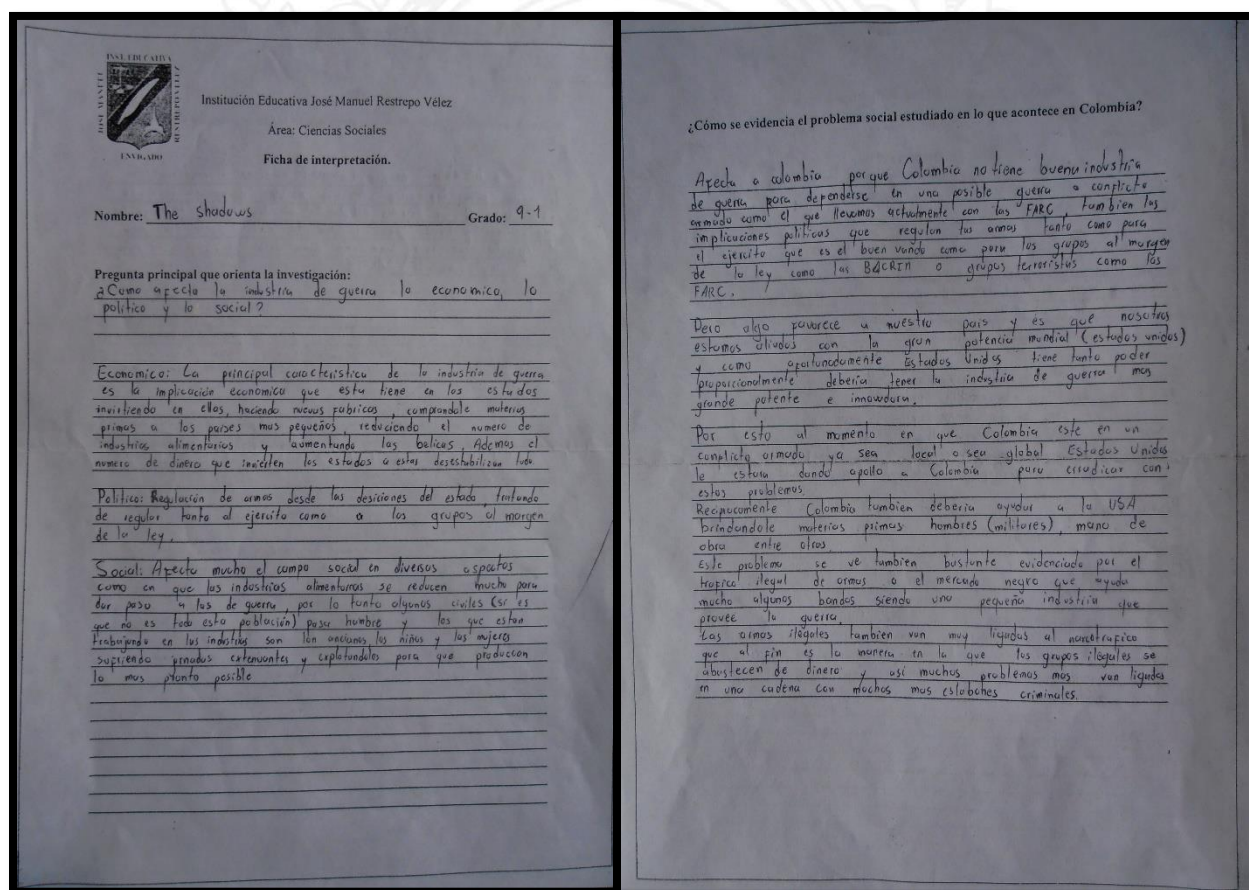 INST. EDUCATIVA
JOSE MANUEL
RESTREPO VELEZ
ENVIGADO
Institución Educativa José Manuel Restrepo Vélez
Área: Ciencias Sociales
Ficha de interpretación.
Nombre: The shadows Grado: 9-1
Pregunta principal que orienta la investigación:
¿Como afecta la industria de guerra lo economico, lo
politico y lo social?
Economico: La principal caracteristica de la industria de guerra
es la implicación economica que esta tiene en los estados
invirtiendo en ellas, haciendo nuevas fabricas, comprandole materias
primas a los paises mas pequeños, reduciendo el numero de
industrias alimentarias y aumentando las belicas. Ademas el
numero de dinero que invierten los estados a estas desestabilizan todo
Politico: Regulación de armas desde las desiciones del estado, tratando
de regular tanto al ejercito como a los grupos al margen
de la ley.
Social: Afecta mucho el campo social en diversos aspectos
como en que las industrias alimentarias se reducen mucho para
dar paso a las de guerra, por lo tanto algunos civiles (si es
que no es toda esta población) pasa hambre y los que estan
trabajando en las industrias son los ancianos los niños y las mujeres
sufriendo jornadas extenuantes y explotandolos para que produccan
lo mas pronto posible
¿Cómo se evidencia el problema social estudiado en lo que acontece en Colombia?
Afecta a colombia porque Colombia no tiene buena industria
de guerra para dependerse en una posible guerra o conflicto
armado como el que llevamos actualmente con las FARC, tambien las
implicaciones politicas que regulan las armas tanto como para
el ejercito que es el buen vando como para los grupos al margen
de la ley como las BACRIN o grupos terroristas como las
FARC.
Pero algo favorece a nuestro pais y es que nosotros
estamos aliados con la gran potencia mundial (estados unidos)
y como afortunadamente Estados Unidos tiene tanto poder
proporcionalmente deberia tener la industria de guerra mas
grande potente e innovadora.
Por esto al momento en que Colombia este en un
conflicto armado ya sea local o sea global Estados Unidos
le estara dando apollo a Colombia para erradicar con
estos problemas.
Reciprocamente Colombia tambien deberia ayudar a la USA
brindandole materias primas hombres (militares), mano de
obra entre otros
Este problema se ve tambien bastante evidenciado por el
trafico ilegal de armas o el mercado negro que ayuda
mucho algunos bandos siendo una pequeña industria que
provee la guerra.
Las armas ilegales tambien van muy ligadas al narcotrafico
que al fin es la manera en la que los grupos ilegales se
abastecen de dinero y así muchos problemas mas van ligados
en una cadena con muchos mas eslabones criminales.